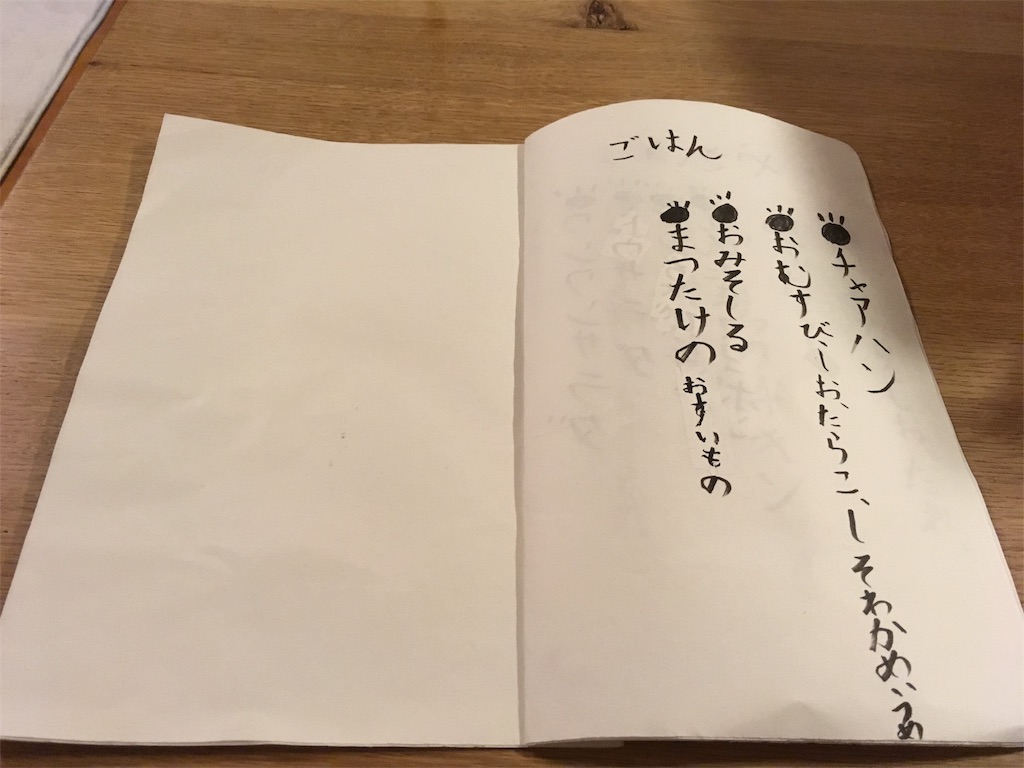 ごはん
チャアハン
おむすび、しお、たらこ、しそわかめ、うめ
おみそしる
まつたけのおすいもの